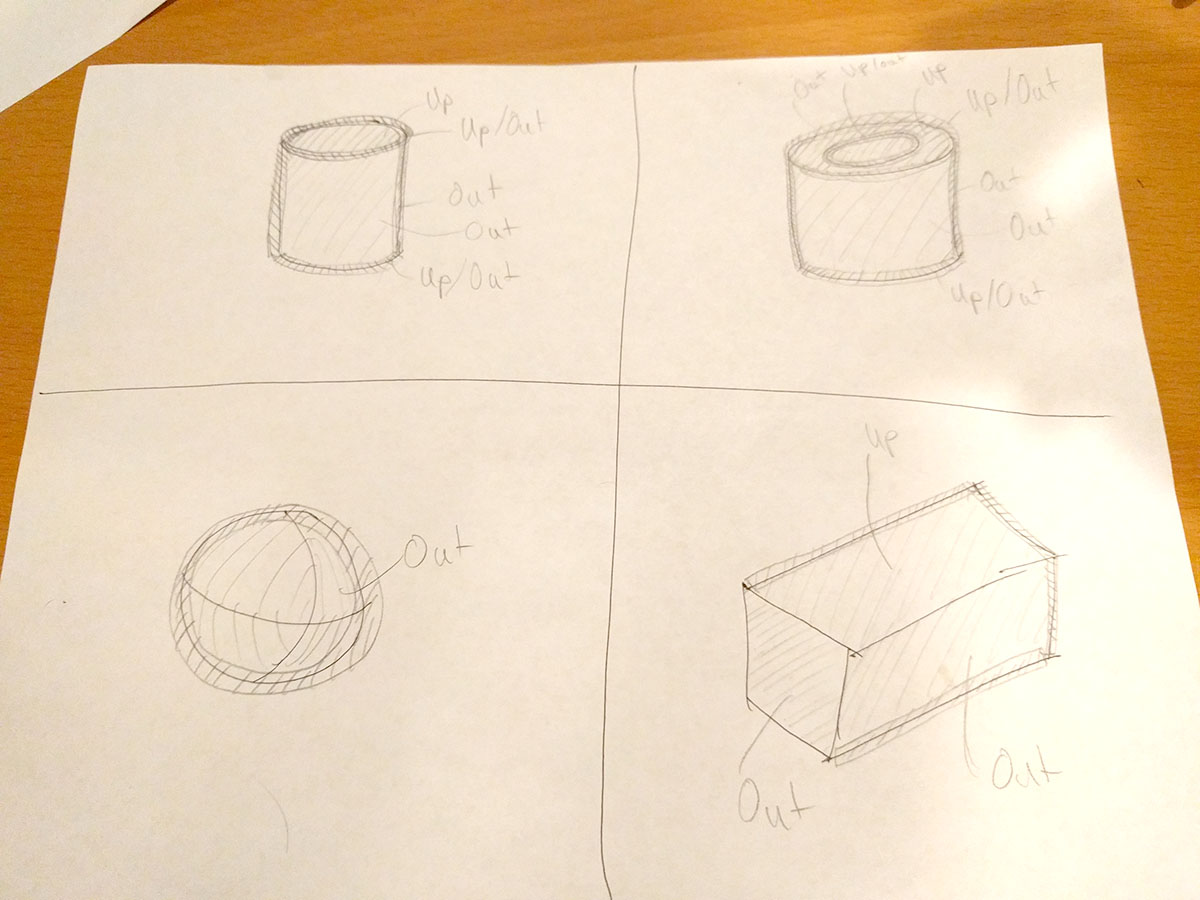 Up
Up/Out
Out
Out
Up/Out
Out
Up/out
Up
Up/Out
Out
Out
Up/Out
Out
Up
Out
Out